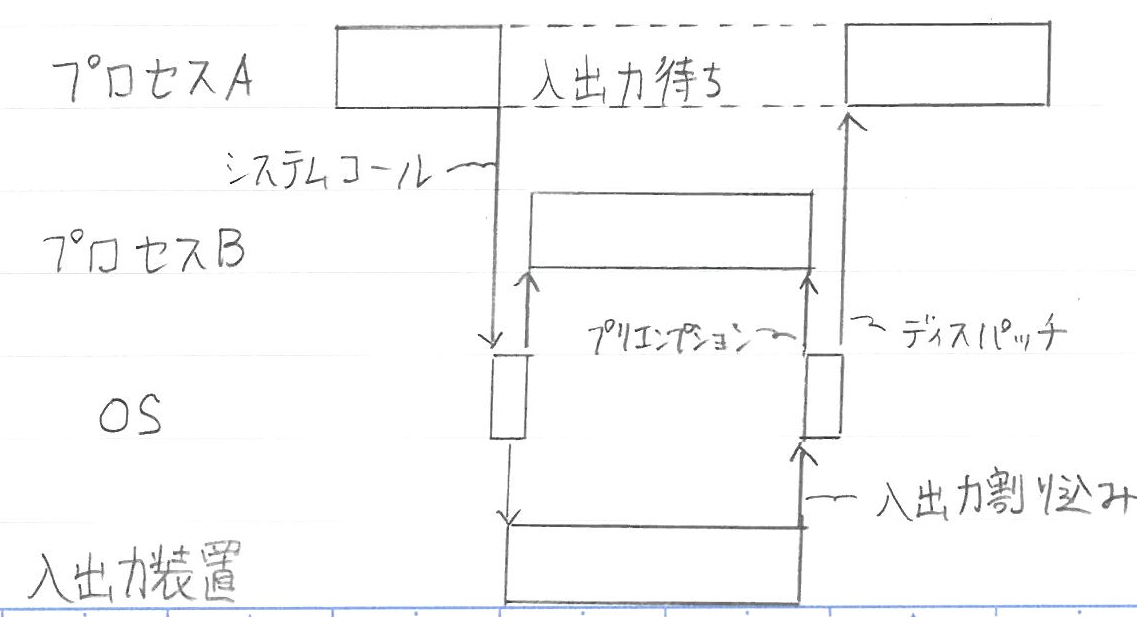 プロセスA
入出力待ち
システムコール
プロセスB
プリエンプション
ディスパッチ
OS
入出力割り込み
入出力装置